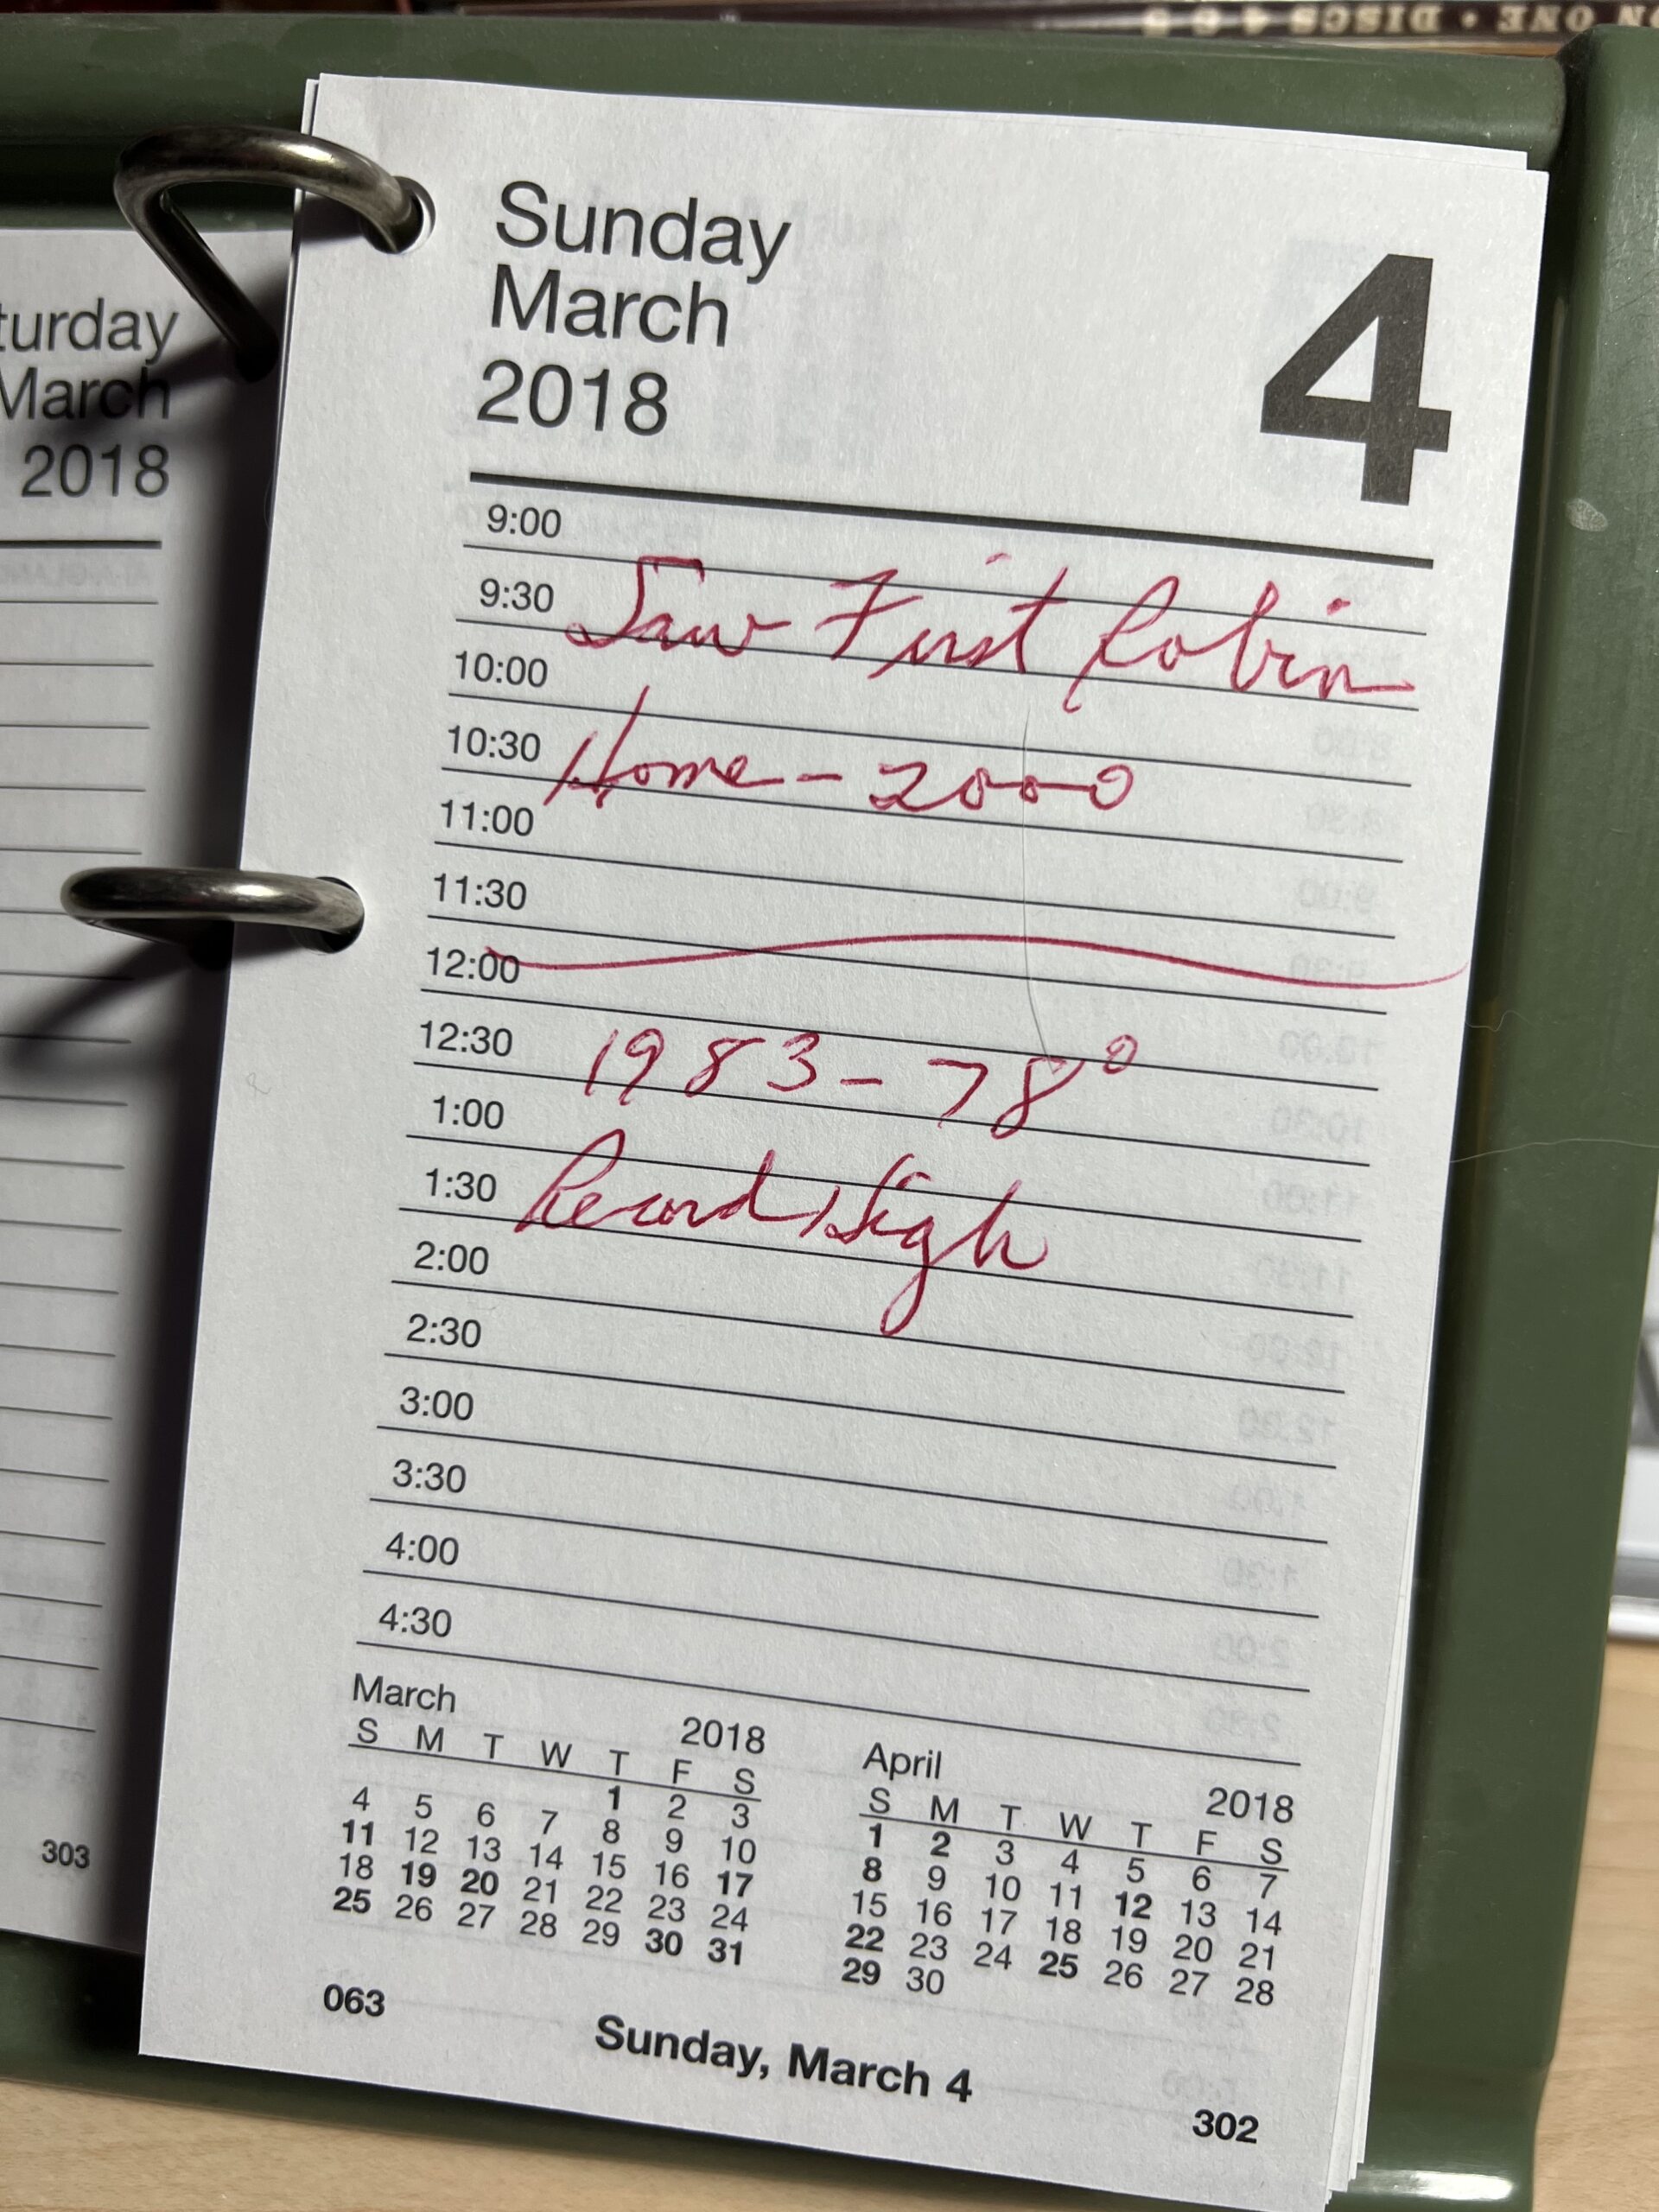 ON ONE • DISCS 4 & 5
turday
March
2018
303
Sunday
March
2018
4
9:00
9:30 Saw First Robin
10:00
10:30 Home - 2000
11:00
11:30
12:00
12:30 1983 - 78°
1:00
1:30 Record High
2:00
2:30
3:00
3:30
4:00
4:30
March 2018
S M T W T F S
1 2 3
4 5 6 7 8 9 10
11 12 13 14 15 16 17
18 19 20 21 22 23 24
25 26 27 28 29 30 31
April 2018
S M T W T F S
1 2 3 4 5 6 7
8 9 10 11 12 13 14
15 16 17 18 19 20 21
22 23 24 25 26 27 28
29 30
063
Sunday, March 4
302